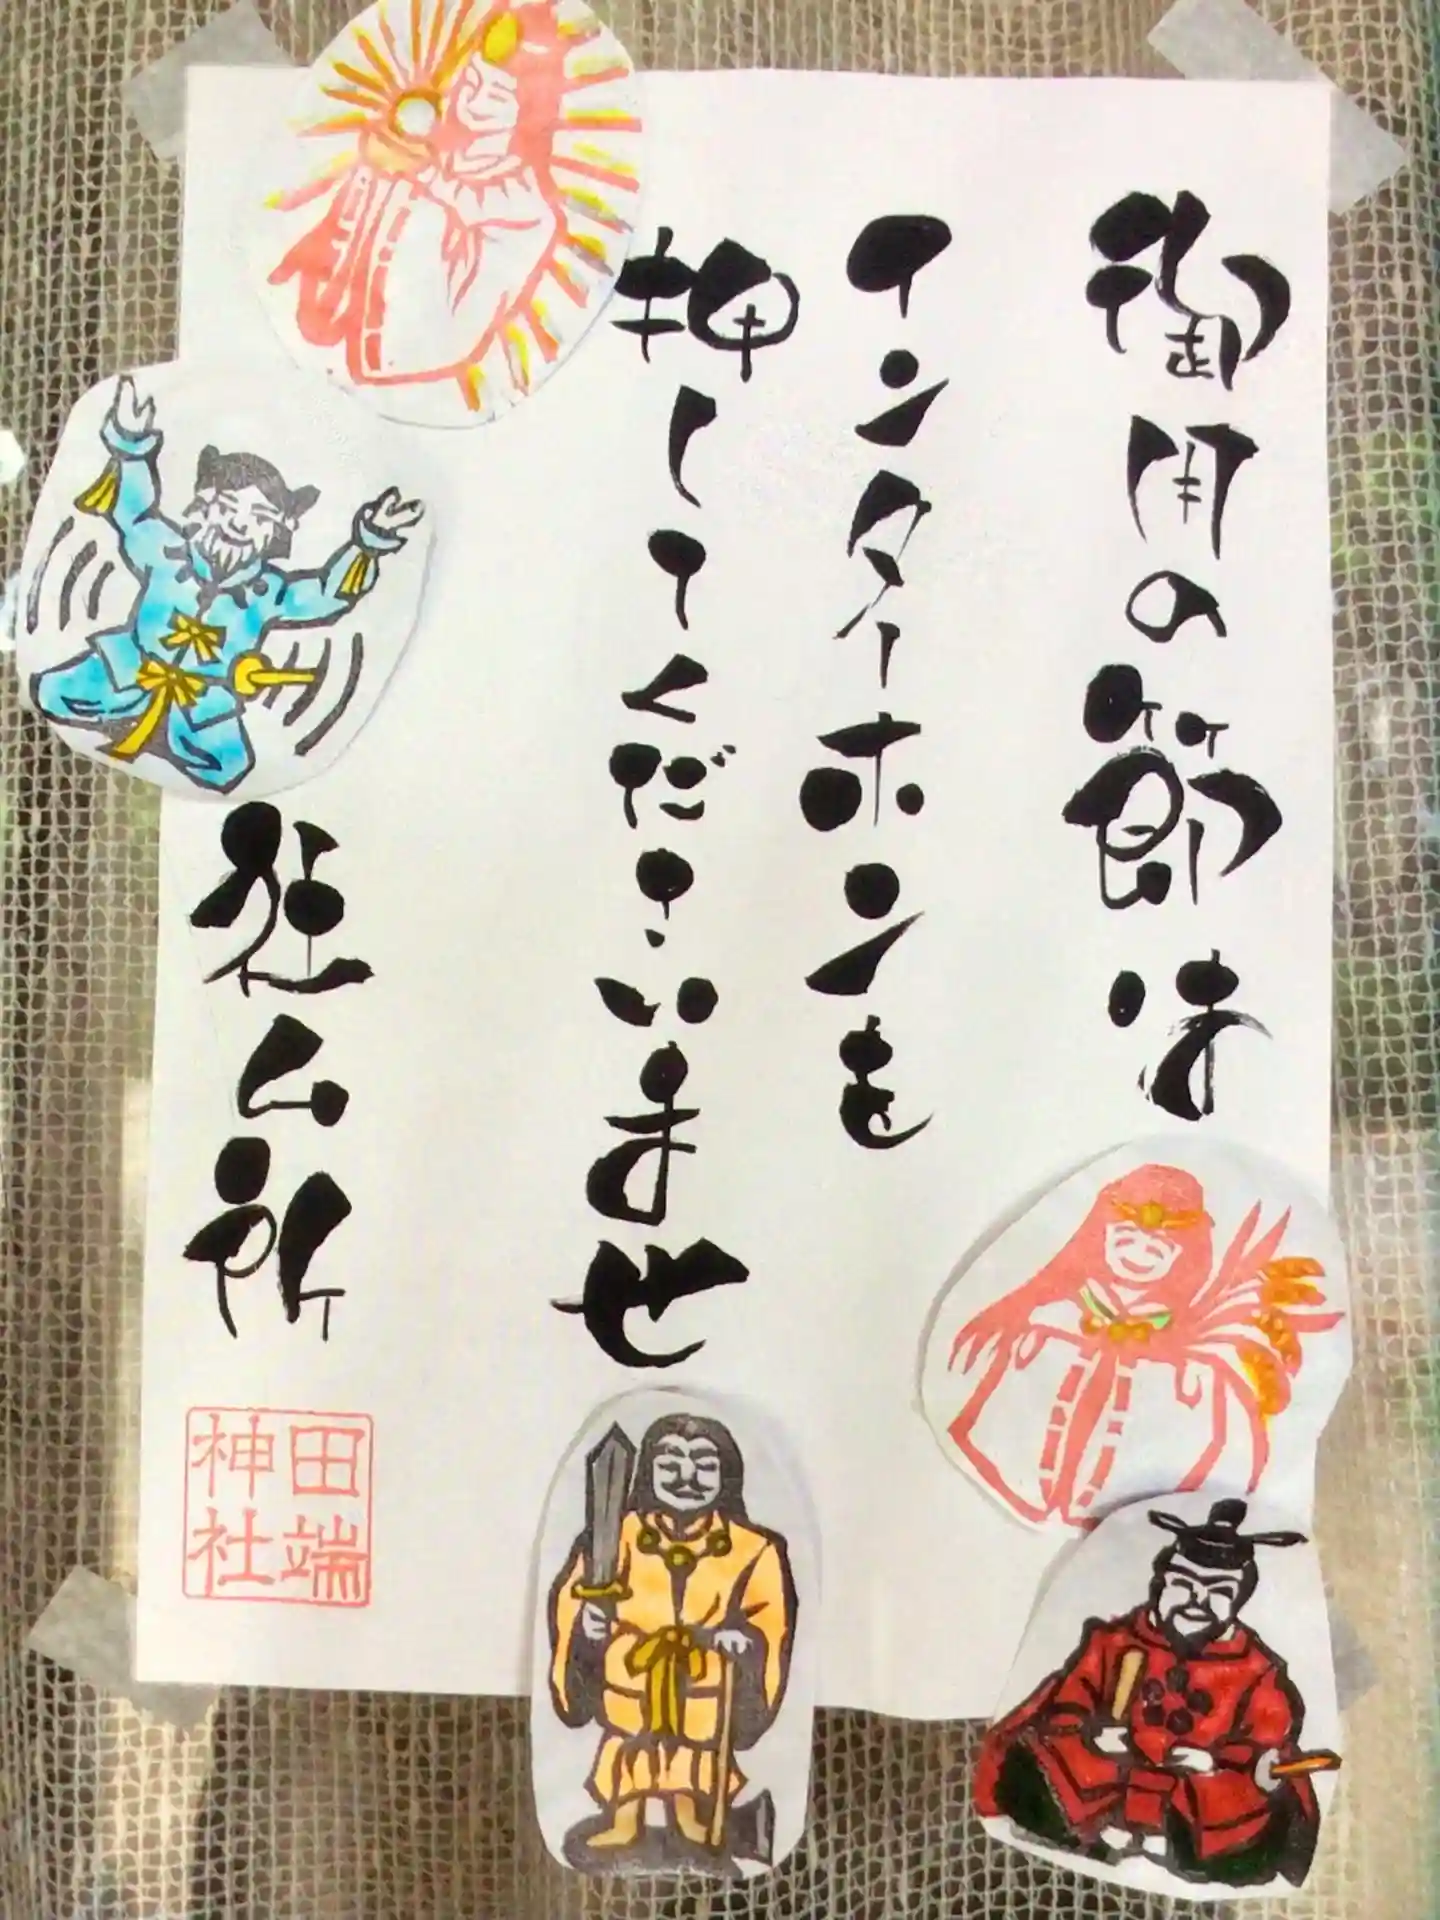 御用の節は
インターホンを
押してくださいませ
社ム所
田端
神社